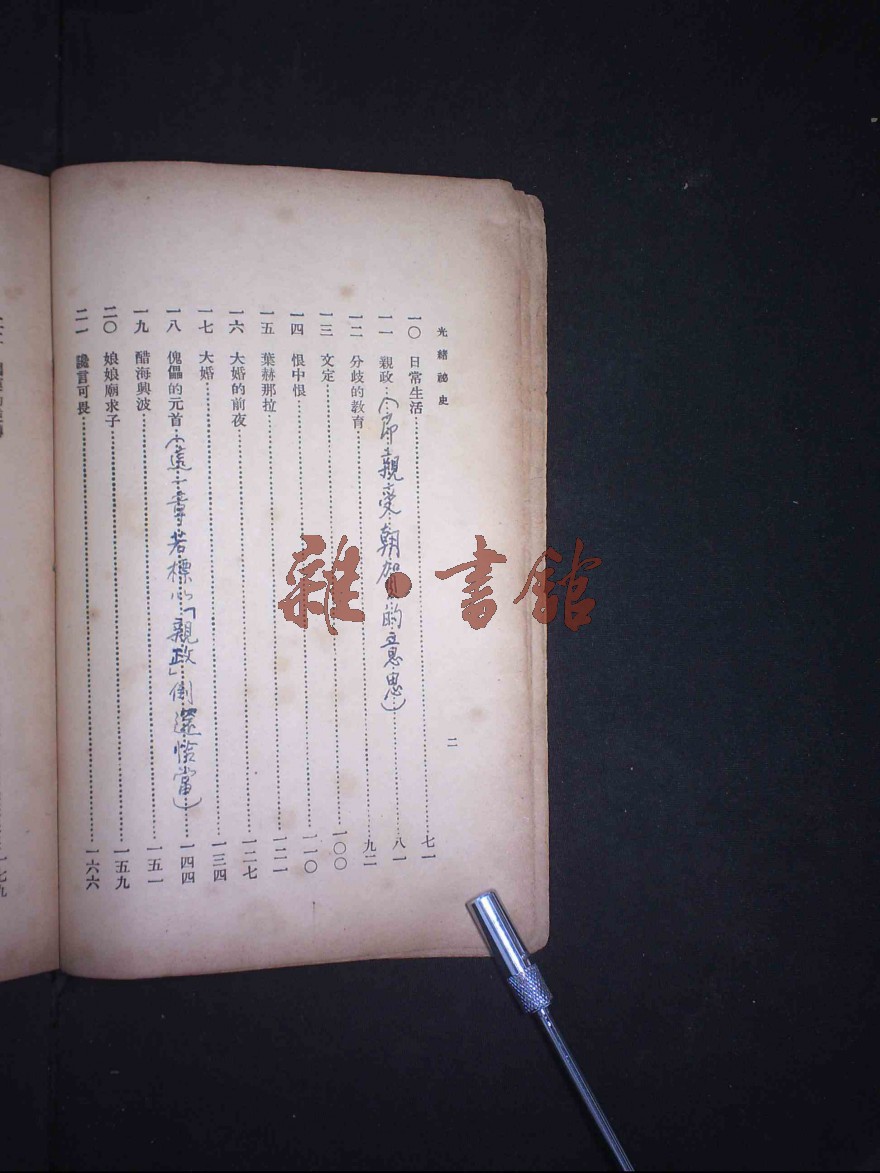 光緒祕史
二
一〇　日常生活………七一
一一　親政（即親受朝賀的意思）………八一
一二　分歧的教育………九二
一三　文定………一〇〇
一四　恨中恨………一一〇
一五　葉赫那拉………一二一
一六　大婚的前夜………一二七
一七　大婚………一三四
一八　傀儡的元首（這一章若標以「親政」倒還恰當）………一四四
一九　醋海興波………一五一
二〇　娘娘廟求子………一五九
二一　讒言可畏………一六六
一七九
雜·書館